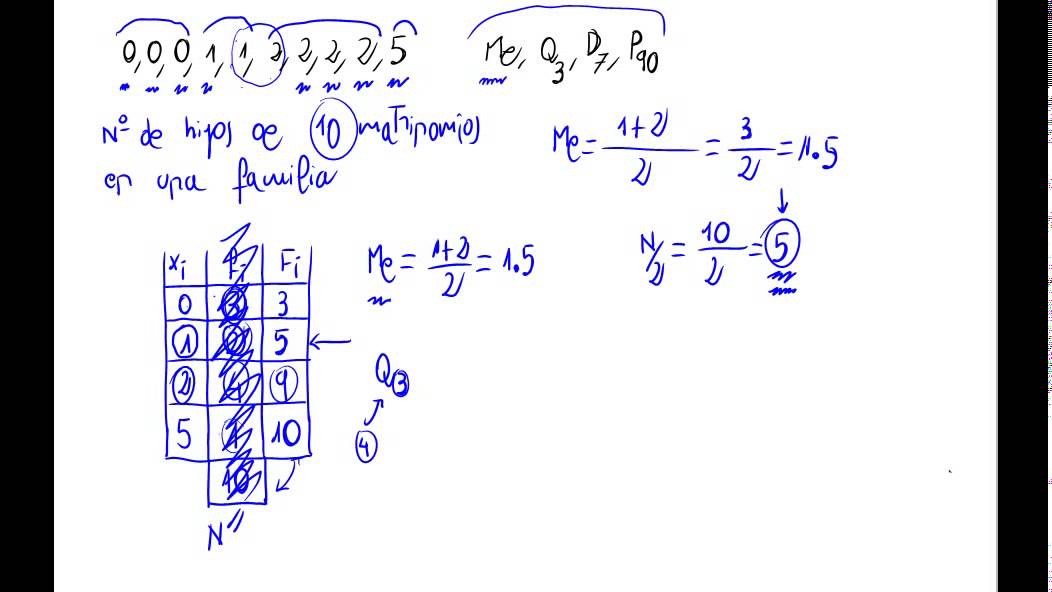 0, 0, 0, 1, 1, 2, 2, 2, 2, 5
Me, Q3, D7, P90
Nº de hijos de 10 matrimonios
en una familia
Me = 1+2/2 = 3/2 = 1.5
N/2 = 10/2 = 5
xi fi Fi
0 3 3
1 2 5
2 4 9
5 1 10
10
N
Me = 1+2/2 = 1.5
Q3
4